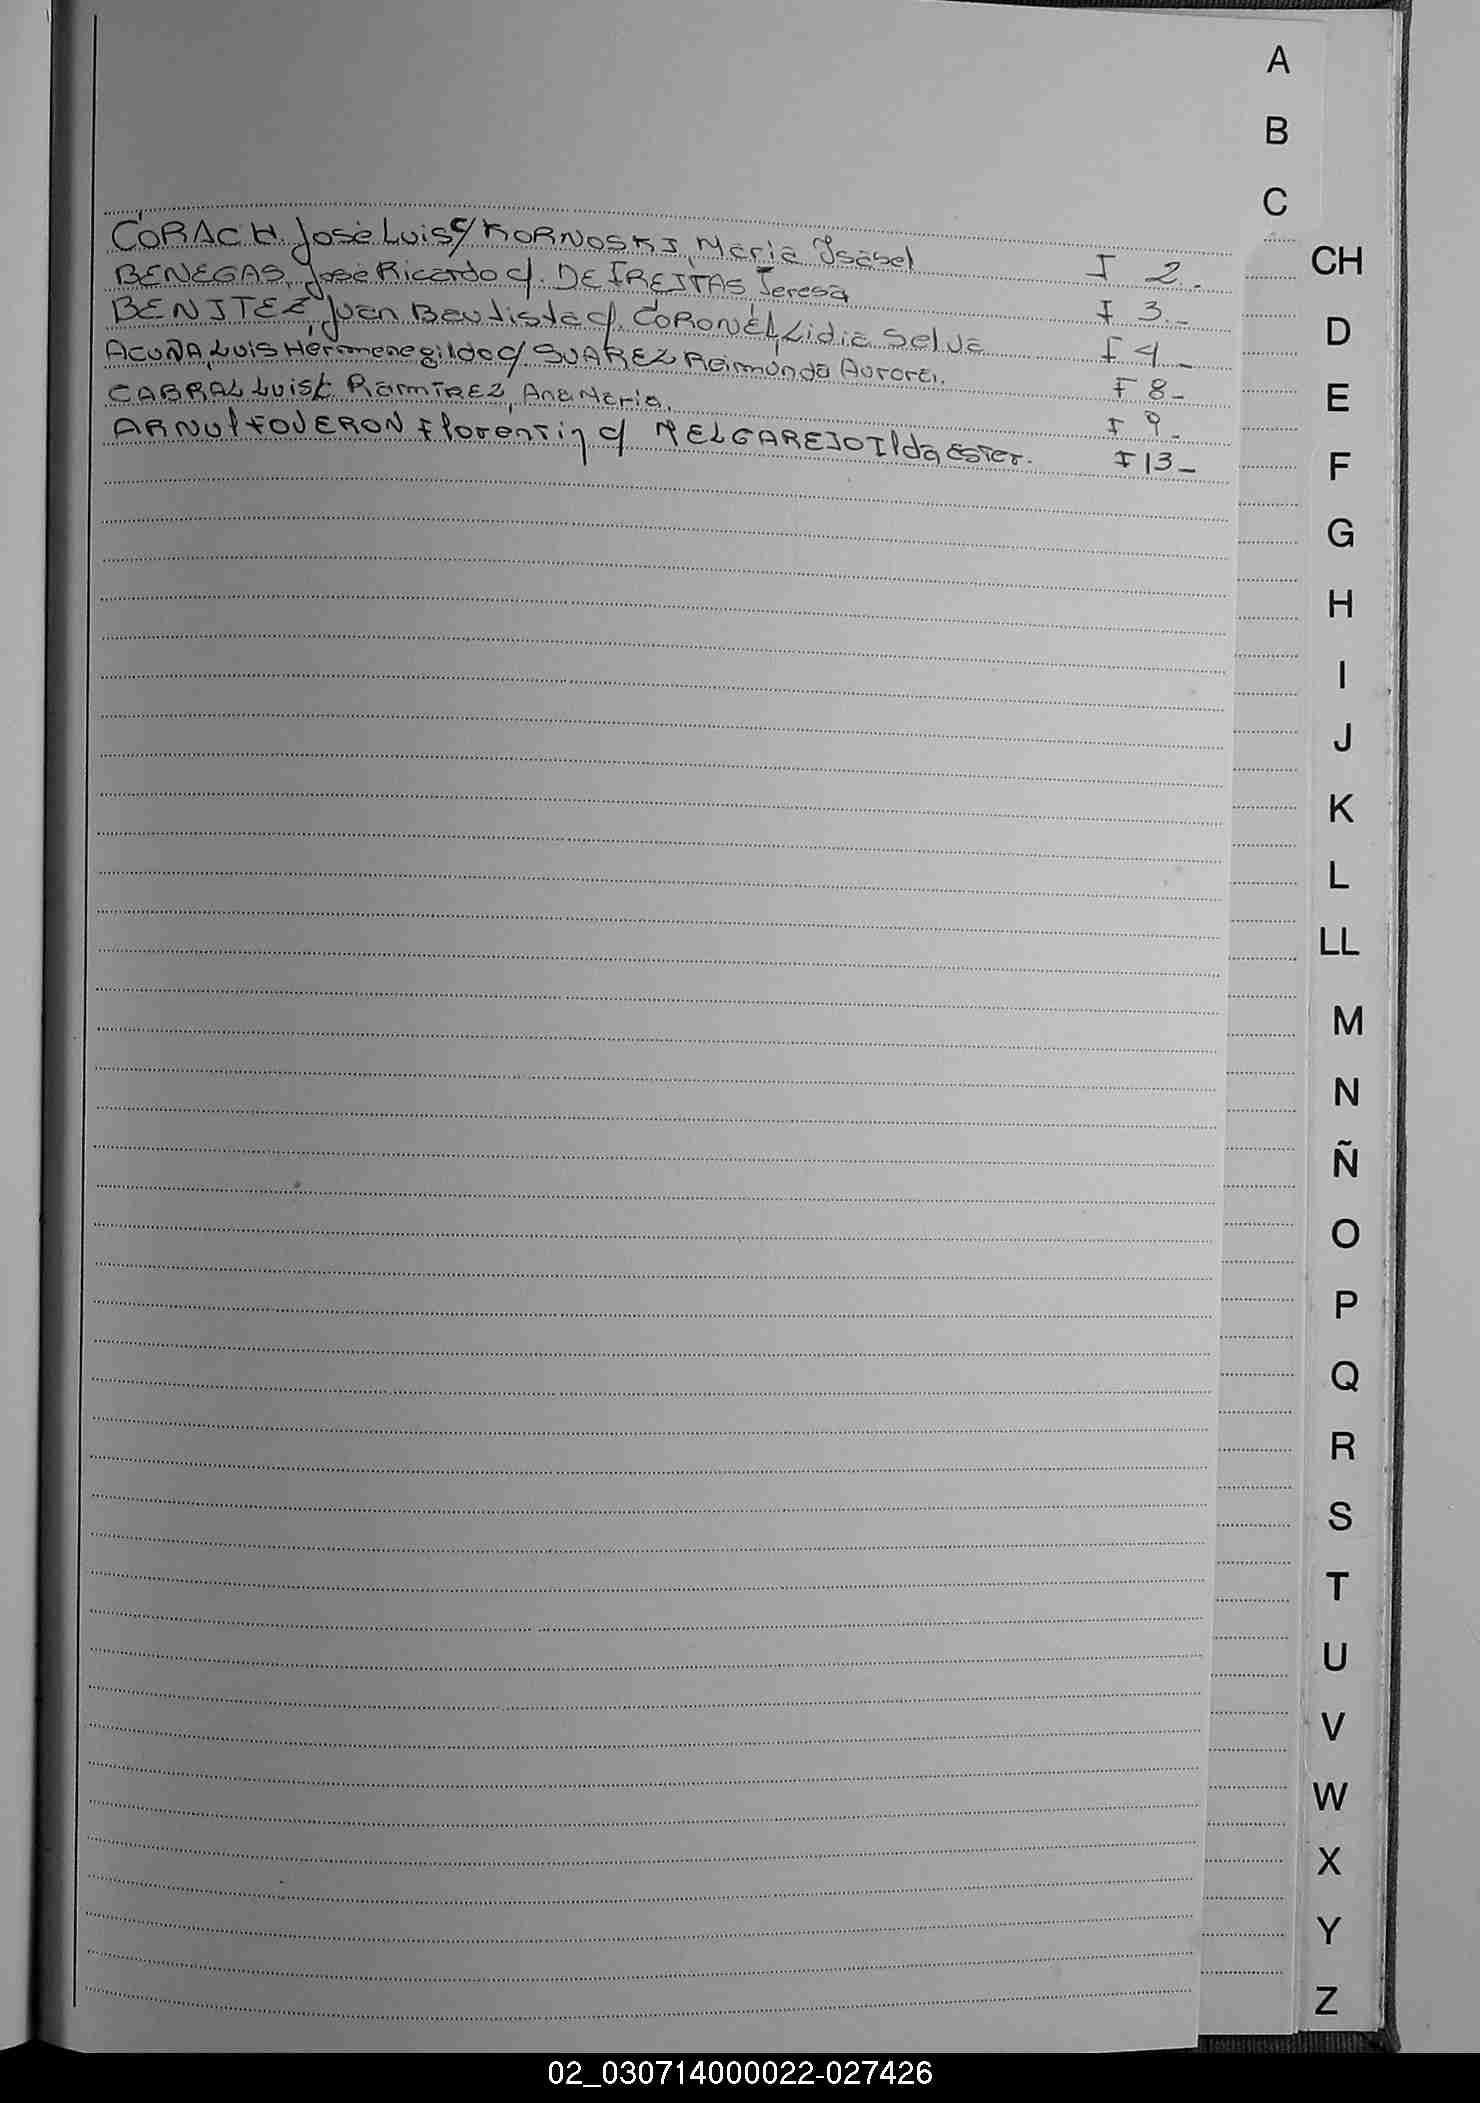 CORACH. José Luis c/ KORNOSKI, Maria Isabel I 2.-
BENEGAS, José Ricardo c/. DE FREITAS, Teresa F 3.-
BENITEZ, Juan Bautista c/. CORONEL, Lidia Selva F 4 -
ACUÑA, Luis Hermenegildo c/ SUAREZ Raimunda Aurora. F 8-
CABRAL Luis c/ RAMIREZ, Ana Maria. F 9-
ARNULF FOUERON Florentin c/ MELGAREJO Ilda Ester. F 13-
A
B
C
CH
D
E
F
G
H
I
J
K
L
LL
M
N
Ñ
O
P
Q
R
S
T
U
V
W
X
Y
Z
02_030714000022-027426